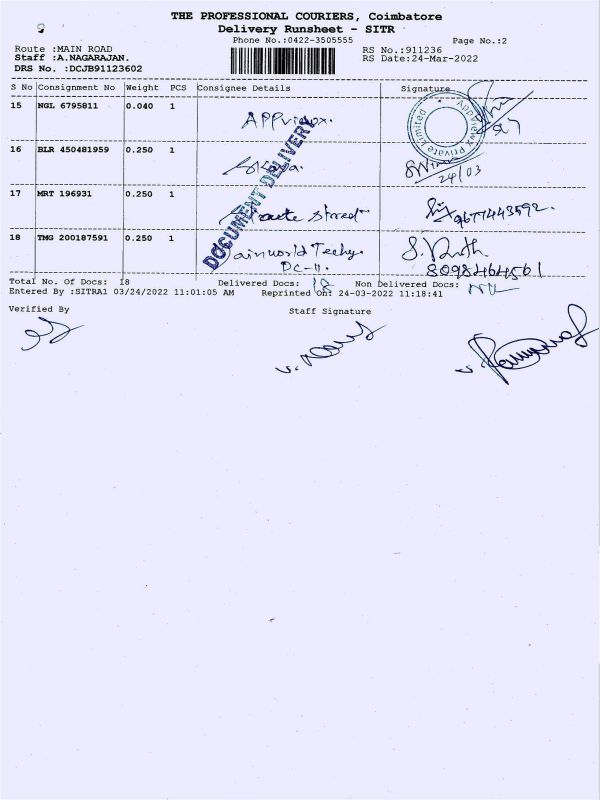 THE PROFESSIONAL COURIERS, Coimbatore
Delivery Runsheet - SITR
Phone No.:0422-3505555
Page No.:2
Route :MAIN ROAD
RS No.:911236
Staff :A.NAGARAJAN.
RS Date:24-Mar-2022
DRS No. :DCJB91123602
S No Consignment No Weight PCS Consignee Details Signature
15 NGL 6795811 0.040 1
Appviewx Private Limited
16 BLR 450481959 0.250 1
24/03
17 MRT 196931 0.250 1
9677443592.
18 TMG 200187591 0.250 1
8098464561
DOCUMENT DELIVERY
Total No. Of Docs: 18 Delivered Docs: 18 Non Delivered Docs: NIL
Entered By :SITRA1 03/24/2022 11:01:05 AM Reprinted On: 24-03-2022 11:18:41
Verified By Staff Signature